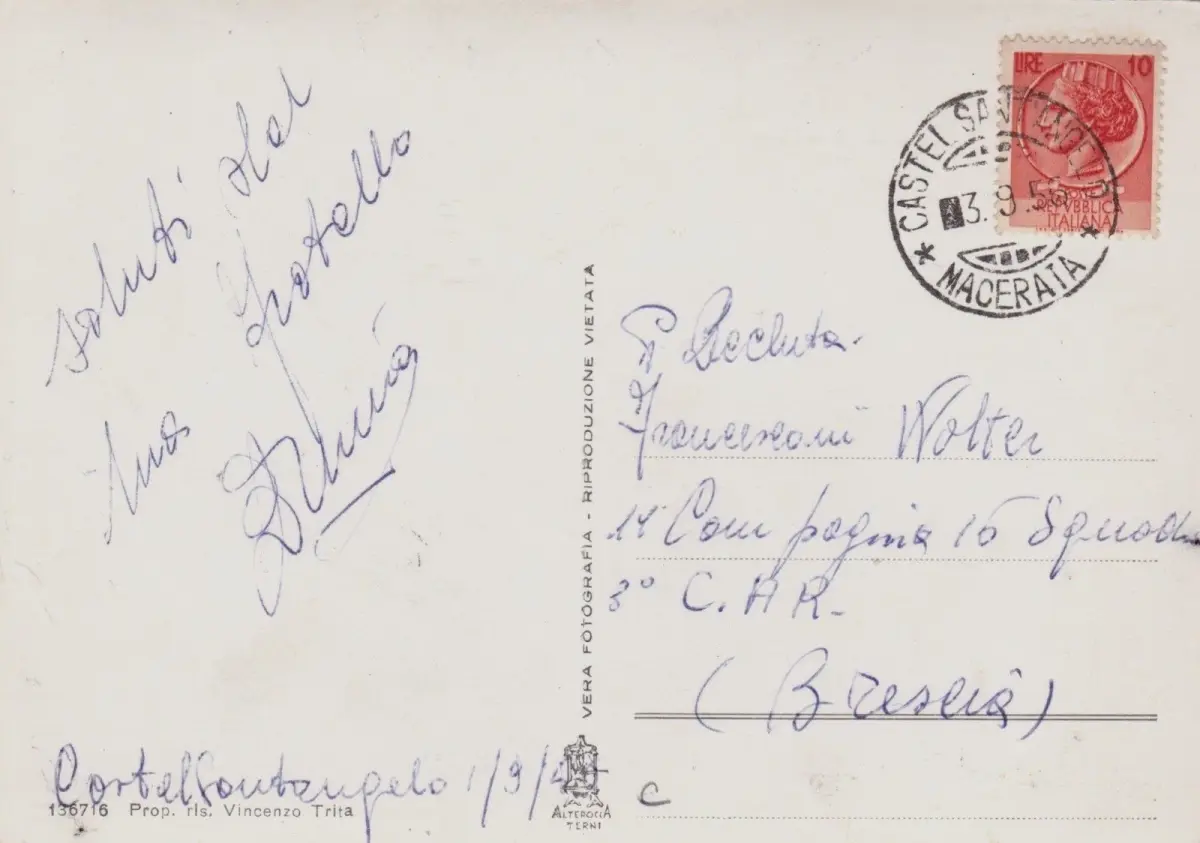 saluti dal
tuo fratello
LIRE 10
REPVBBLICA
ITALIANA
CASTEL SANT'ANGELO
3.9.56
MACERATA
VERA FOTOGRAFIA - RIPRODUZIONE VIETATA
Recluta
Francesconi Wolter
14 Compagnia 16 Squadra
3° C.A.R.
(Brescia)
Castelsantangelo 1/9/
136716 Prop. ris. Vincenzo Trita
ALTEROCCA
TERNI
C